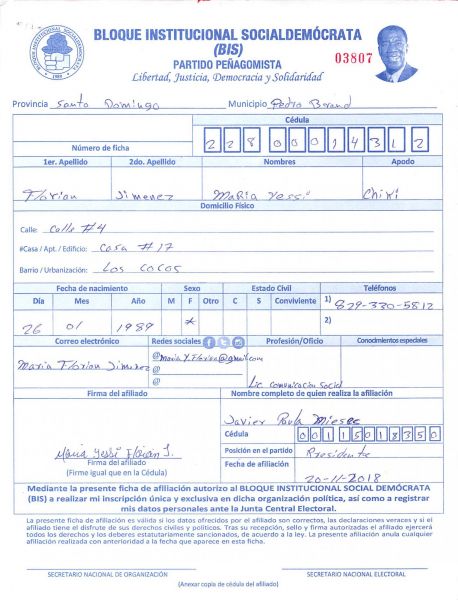 BLOQUE INSTITUCIONAL SOCIALDEMÓCRATA
(BIS)
PARTIDO PEÑAGOMISTA
Libertad, Justicia, Democracia y Solidaridad
03807
Provincia Santo Domingo Municipio Pedro Brand
Cédula
Número de ficha 228 0001431 2
1er. Apellido 2do. Apellido Nombres Apodo
Florian Jimenez Maria Yessi Chiki
Domicilio Físico
Calle: Calle #4
#Casa / Apt. / Edificio: Casa #17
Barrio / Urbanización: Los Cocos
Fecha de nacimiento Sexo Estado Civil Teléfonos
Día Mes Año M F Otro C S Conviviente 1) 829-330-5812
26 01 1989 x 2)
Correo electrónico Redes sociales Profesión/Oficio Conocimientos especiales
Maria Florian Jiminez @Maria Y.Florian@gmail.com
@
@ Lic comunicacion Social
Firma del afiliado Nombre completo de quien realiza la afiliación
Javier Paula
Cédula
001 1501835 0
Maria Yessi Florian J.
Firma del afiliado
(Firme igual que en la Cédula)
Posición en el partido Presidente
Fecha de afiliación 20-11-2018
Mediante la presente ficha de afiliación autorizo al BLOQUE INSTITUCIONAL SOCIAL DEMÓCRATA
(BIS) a realizar mi inscripción única y exclusiva en dicha organización política, así como a registrar
mis datos personales ante la Junta Central Electoral.
La presente ficha de afiliación es válida si los datos ofrecidos por el afiliado son correctos, las declaraciones veraces y si el
afiliado tiene el disfrute de sus derechos civiles y políticos. Tras su recepción, sello y firma autorizadas el afiliado ejercerá
todos los derechos y los deberes estatutariamente sancionados, de acuerdo a la ley. La presente afiliación anula cualquier
afiliación realizada con anterioridad a la fecha que aparece en esta ficha.
SECRETARIO NACIONAL DE ORGANIZACIÓN SECRETARIO NACIONAL ELECTORAL
(Anexar copia de cédula del afiliado)